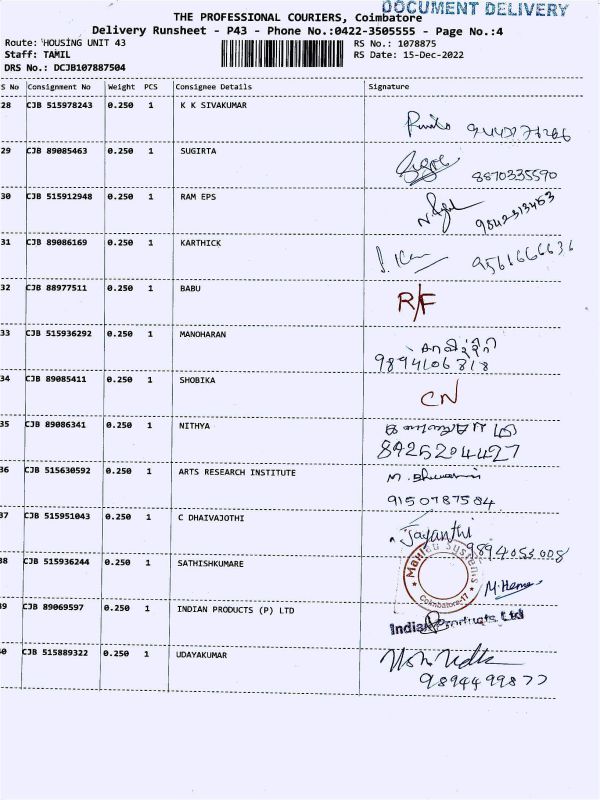 DOCUMENT DELIVERY
THE PROFESSIONAL COURIERS, Coimbatore
Delivery Runsheet - P43 - Phone No.:0422-3505555 - Page No.:4
Route: HOUSING UNIT 43
RS No.: 1078875
Staff: TAMIL
RS Date: 15-Dec-2022
DRS No.: DCJB107887504
S No Consignment No Weight PCS Consignee Details Signature
28 CJB 515978243 0.250 1 K K SIVAKUMAR
29 CJB 89085463 0.250 1 SUGIRTA
8870335590
30 CJB 515912948 0.250 1 RAM EPS
9842313453
31 CJB 89086169 0.250 1 KARTHICK
9561666636
32 CJB 88977511 0.250 1 BABU R/F
33 CJB 515936292 0.250 1 MANOHARAN
9894106318
34 CJB 89085411 0.250 1 SHOBIKA CN
35 CJB 89086341 0.250 1 NITHYA
8925204427
36 CJB 515630592 0.250 1 ARTS RESEARCH INSTITUTE M.
9150787504
37 CJB 515951043 0.250 1 C DHAIVAJOTHI Jayanthi
9894053008
38 CJB 515936244 0.250 1 SATHISHKUMARE
Systems
Coimbatore-17
M. Hema
39 CJB 89069597 0.250 1 INDIAN PRODUCTS (P) LTD
Indian Products Ltd
40 CJB 515889322 0.250 1 UDAYAKUMAR
9894499877